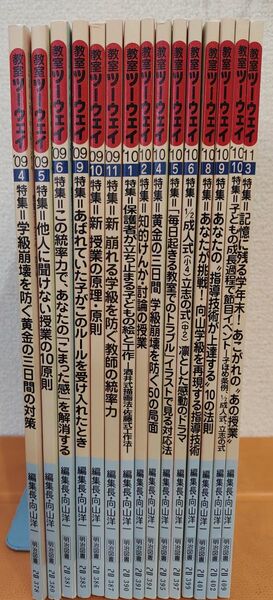 教室ツーウェイ '09 4 特集=学級崩壊を防ぐ黄金の三日間の対策 編集長・向山洋一 明治図書
教室ツーウェイ '09 5 特集=他人に聞けない授業の10原則 編集長・向山洋一 明治図書
教室ツーウェイ '09 6 特集=この統率力で、あなたの「こまった感」を解消する 編集長・向山洋一 明治図書
教室ツーウェイ '09 9 特集=あばれていた子がこのルールを受け入れたとき 編集長・向山洋一 明治図書
教室ツーウェイ '09 10 特集=新 授業の原理・原則 編集長・向山洋一 明治図書
教室ツーウェイ '09 11 特集=新 崩れる学級を防ぐ、教師の統率力 編集長・向山洋一 明治図書
教室ツーウェイ '10 1 特集=保護者が立ち止まる子どもの絵と工作 編集長・向山洋一 明治図書
教室ツーウェイ '10 2 特集=知的けんか・討論の授業 編集長・向山洋一 明治図書
教室ツーウェイ '10 4 特集=黄金の三日間 学級崩壊を防ぐ、50の局面 編集長・向山洋一 明治図書
教室ツーウェイ '10 5 特集=毎日起きる教室でのトラブル イラストで見る対応法 編集長・向山洋一 明治図書
教室ツーウェイ '10 6 特集=1/2成人式(小4)立志の式(中2) 凛とした感動のドラマ 編集長・向山洋一 明治図書
教室ツーウェイ '10 8 特集=あなたが挑戦!向山学級を再現する指導技術 編集長・向山洋一 明治図書
教室ツーウェイ '10 9 特集=あなたの"指導技術が上達する"10の法則 編集長・向山洋一 明治図書
教室ツーウェイ '10 10 特集=子どもの成長過程で「節目イベント」 編集長・向山洋一 明治図書
教室ツーウェイ '11 3 特集=記憶に残る学年末!あこがれの"あの授業" 編集長・向山洋一 明治図書